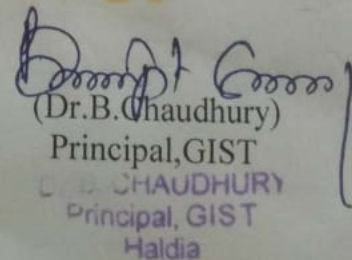 (Dr.B.Chaudhury)
Principal,GIST
CHAUDHURY
Principal, GIST
Haldia